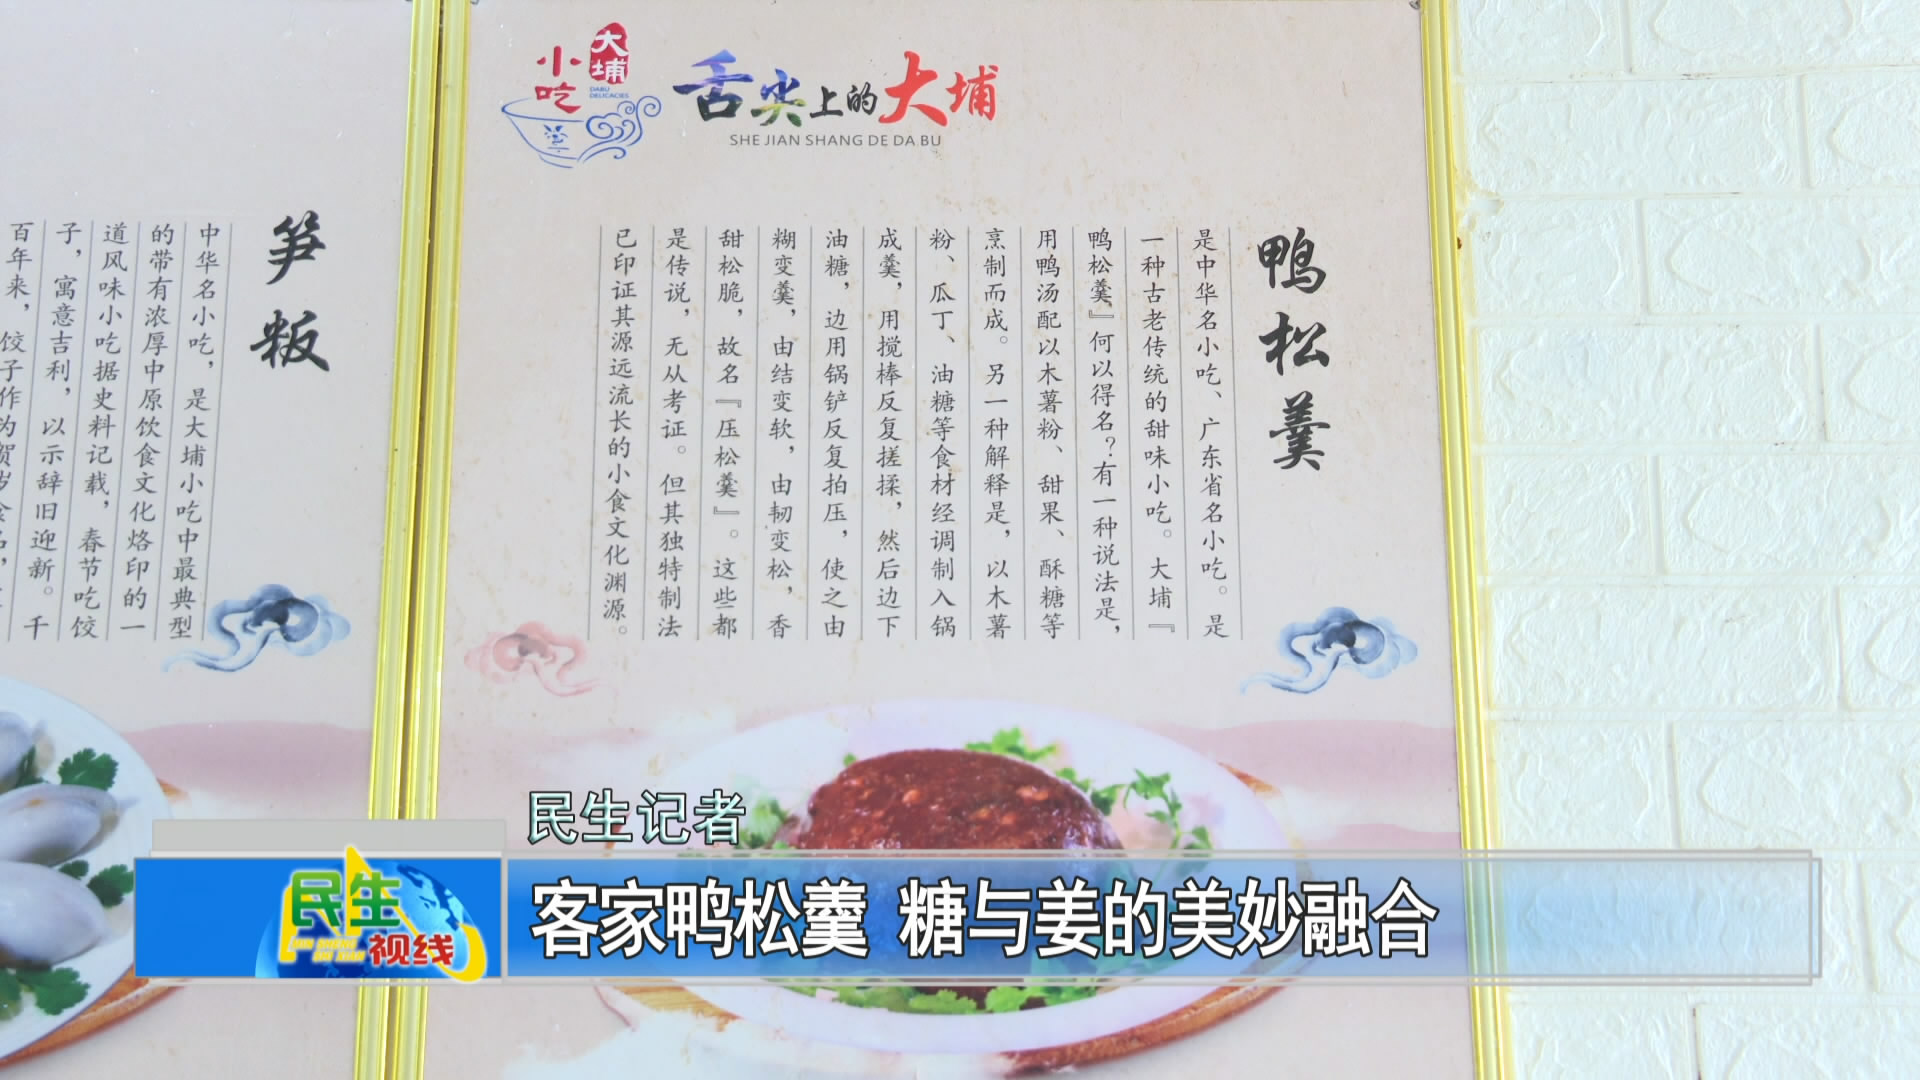 大埔
小吃
DABU
DELICACIES
舌尖上的大埔
SHE JIAN SHANG DE DA BU
鸭松羹
是中华名小吃、广东省名小吃。是
一种古老传统的甜味小吃。大埔『
鸭松羹』何以得名？有一种说法是，
用鸭汤配以木薯粉、甜果、酥糖等
烹制而成。另一种解释是，以木薯
粉、瓜丁、油糖等食材经调制入锅
成羹，用搅棒反复搓揉，然后边下
油糖，边用锅铲反复拍压，使之由
糊变羹，由结变软，由韧变松，香
甜松脆，故名『压松羹』。这些都
是传说，无从考证。但其独特制法
已印证其源远流长的小食文化渊源。
笋粄
中华名小吃，是大埔小吃中最典型
的带有浓厚中原饮食文化烙印的一
道风味小吃据史料记载，春节吃饺
子，寓意吉利，以示辞旧迎新。千
百年来，饺子作为贺岁食品，
民生记者
民生
视线
客家鸭松羹 糖与姜的美妙融合